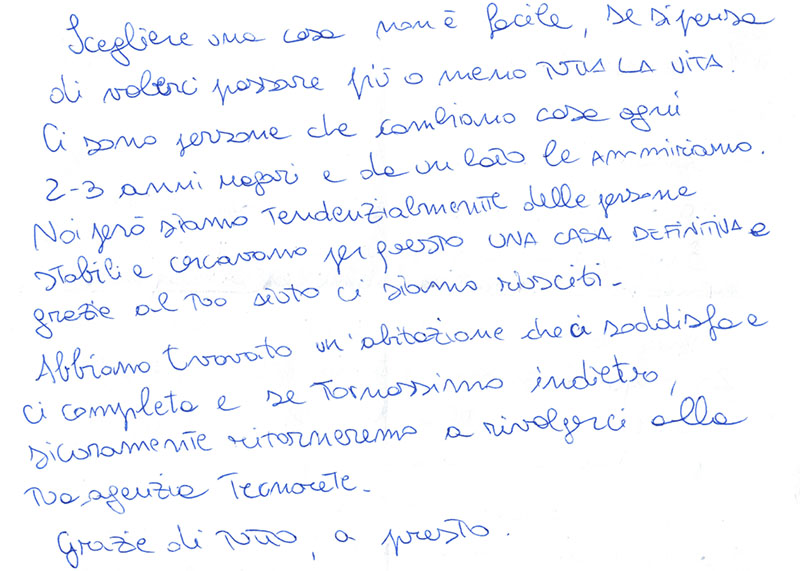 Scegliere una casa non è facile, se si pensa
di volerci passare più o meno TUTTA LA VITA.
Ci sono persone che cambiano casa ogni
2-3 anni magari e da un lato le AMMIRIAMO.
Noi però siamo TENDENZIALMENTE delle persone
STABILI e cercavamo per questo UNA CASA DEFINITIVA e
grazie al TUO aiuto ci siamo riusciti-
Abbiamo trovato un'abitazione che ci soddisfa e
ci completa e se TORNASSIMO indietro,
sicuramente ritorneremo a rivolgerci alla
TUA agenzia Tecnorete-
Grazie di TUTTO, a presto.